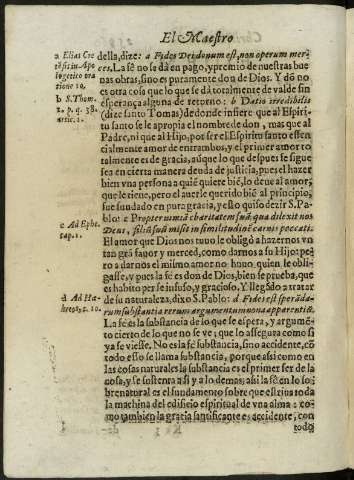 El Maestro
a Elias Cre
tẽsis in Apo
logetico ora
tione 10.
b S. Thom.
2. p. q. 38.
artic. 1.
c Ad Ephe.
cap. 1.
d Ad Hæ
breos, 1. 10.
della, dize: a Fides Dei donum est, non operum mer-
ces. La fè no se dà en pago, y premio de nuestras bue
nas obras, sino es puramente don de Dios. Y dõ no
es otra cosa que lo que se dà totalmente de valde sin
esperança alguna de retorno: b Datio irredibilis
(dize santo Tomas) de donde infiere que al Espiri-
tu santo se le apropia el nombre de don, mas que al
Padre, ni que al Hijo, por ser el Espiritu santo essen
cialmente amor de entrambos, y el primer amor to
talmente es de gracia, aũque lo que despues se sigue
sea en cierta manera deuda de justicia, pues el hazer
bien vna persona a quiẽ quiere biẽ, lo deue al amor,
que le tiene, pero el auerle querido biẽ al principio,
fue fundado en pura gracia, y esto quiso dezir S. Pa-
blo: c Propter nimiã charitatem suã qua dilexit nos
Deus, filiũ suũ misit in similitudinẽ carnis peccati.
El amor que Dios nos tuuo le obligò a hazernos vn
tan grã fauor y merced, como darnos a su Hijo: pe
ro a darnos el mismo amor no huuo quien le obli-
gasse, y pues la fè es don de Dios, bien se prueba, que
es habito per se infuso, y gracioso. Y llegãdo a tratar
de su naturaleza, dixo S. Pablo: d Fides est sperãda-
rum substantia rerum argumentum non apparentiũ.
La fè es la substancia de lo que se espera, y argumẽ-
to cierto de lo que no se ve: que lo assegura como si
ya se viesse. No es la fè substancia, sino accidente, cõ
todo esso se llama substancia, porque assi como en
las cosas naturales la substancia es el primer ser de la
cosa, y se sustenta a si y a lo demas; assi la fè en lo so-
brenatural es el fundamento sobre que estriua toda
la machina del edificio espiritual de vna alma: co-
mo tambien la gracia santificante es accidente, con
todo